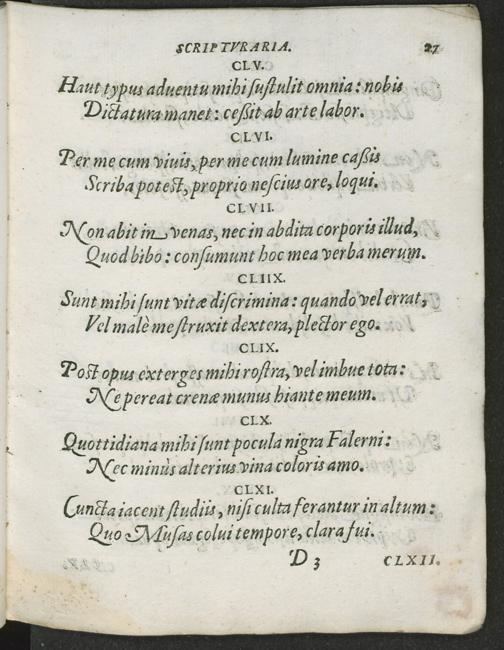 SCRIPTVRARIA. 27
CLV.
Haut typus adventu mihi ſuſtulit omnia: nobis
Dictatura manet: ceßit ab arte labor.
CLVI.
Per me cum vivis, per me cum lumine caßis
Scriba poteſt, proprio neſcius ore, loqui.
CLVII.
Non abit in venas, nec in abdita corporis illud,
Quod bibo: conſumunt hoc mea verba merum.
CLIIX.
Sunt mihi ſunt vitæ diſcrimina: quando vel errat,
Vel malè me ſtruxit dextera, plector ego.
CLIX.
Poſt opus exterges mihi roſtra, vel imbue tota:
Ne pereat crenæ munus hiante meum.
CLX.
Quottidiana mihi ſunt pocula nigra Falerni:
Nec minùs alterius vina coloris amo.
CLXI.
Cuncta iacent ſtudiis, niſi culta ferantur in altum:
Quo Muſas colui tempore, clara fui.
D 3 CLXII.